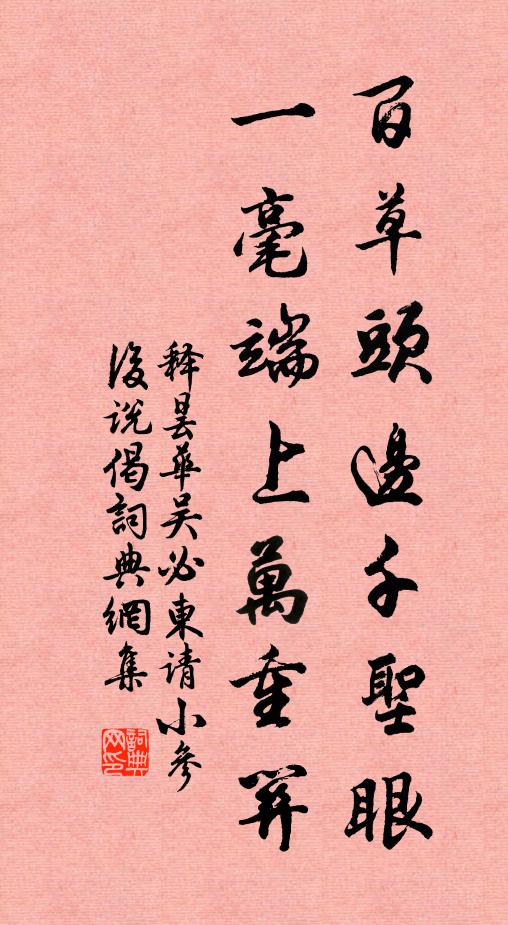 百草頭邊千聖眼
一毫端上萬重關
釋曇華吴必東請小參
後説偈詞典網集
詞典
网印